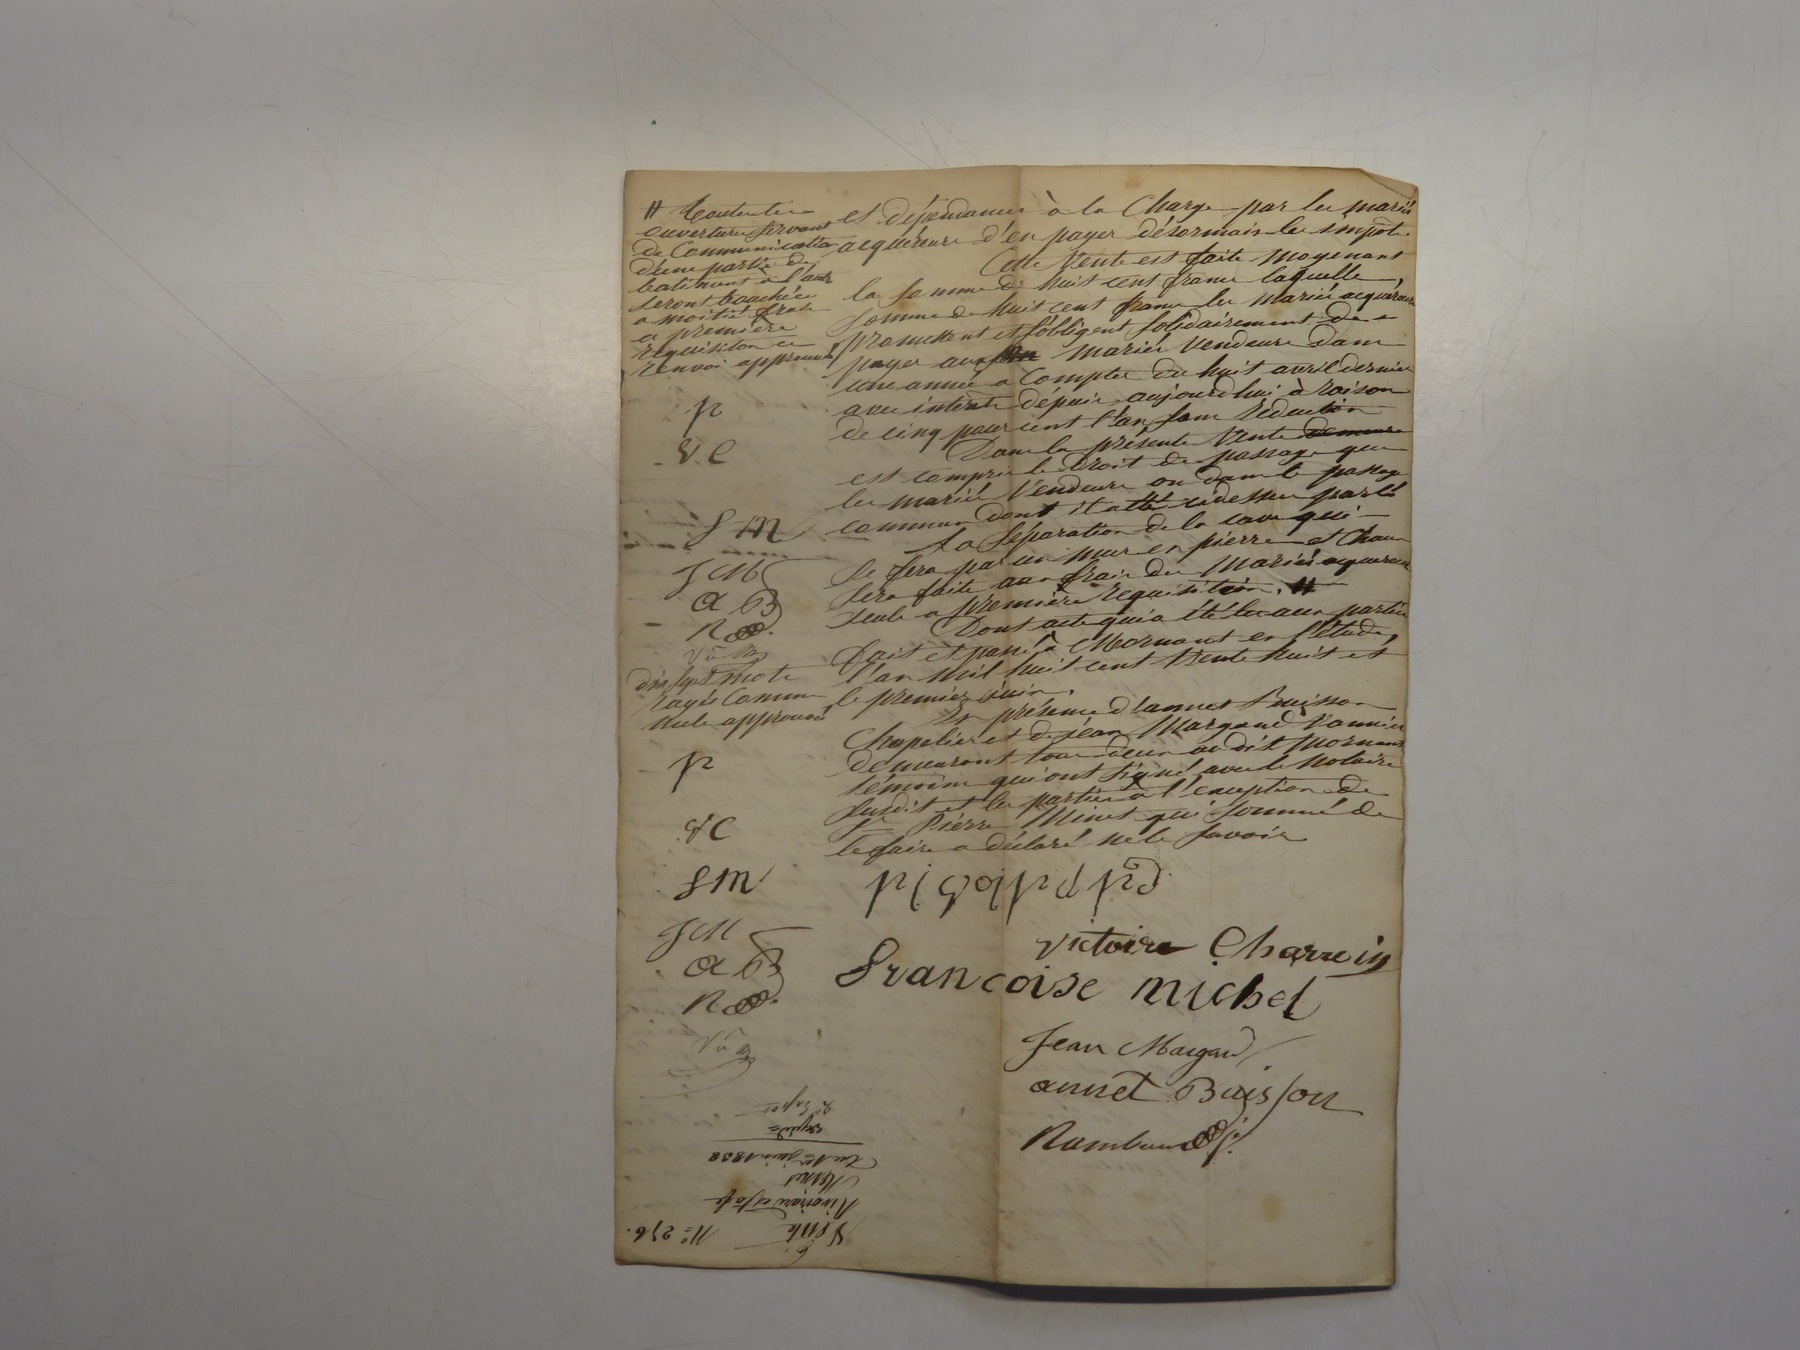 et dépendances à la Charge par les mariés
acquéreurs d'en payer désormais les impots
Cette Vente est faite moyenant
la somme de huit cent francs laquelle
somme de huit cent francs les mariés acquéreurs
promettent et s'obligent solidairement de
payer aux mariés Vendeurs dans
une année a Compter du huit avril dernier
avec intérêts dépuis aujourd'hui à raison
de cinq pour cent l'an sans réduction
Dans la présente Vente demeure
est compris le droit de passage que
les mariés Vendeurs ont dans le passage
commun dont il a été cidessus parlé
La Séparation de la cave qui
se fera par un mur en pierre et Chaux
sera faite aux frais des Mariés acquéreurs
seuls a première requisition. #
Dont acte qui a été lu aux parties
Fait et passé a Mornant en l'étude,
l'an Mil huit cent trente huit et
le premier juin.
En présence d'annet Buisson
Chapelier et de jean Margand Vannier
demeurant tous deux au dit Mornant
témoins qui ont signé avec le Notaire
susdit et les parties a l'exception de
Sr Pierre Minet qui sommé de
le faire a déclaré ne le savoir
# toutes les
ouvertures servant
de Communication
d'une partie de
batiment à l'autre
seront bouchées
a moitié frais
a première
requisition ce
renvoi approuvé
p
V C
f m
J M
a B
R
dix sept mots
rayés comme
nuls approuvés
p
V C
f m
J M
a B
R
Victoire Charvin
francoise michel
Jean Margand
annet Buisson
Rambaud
Nº 276.
Vente
Minet
Du 1er juin 1838
expédié